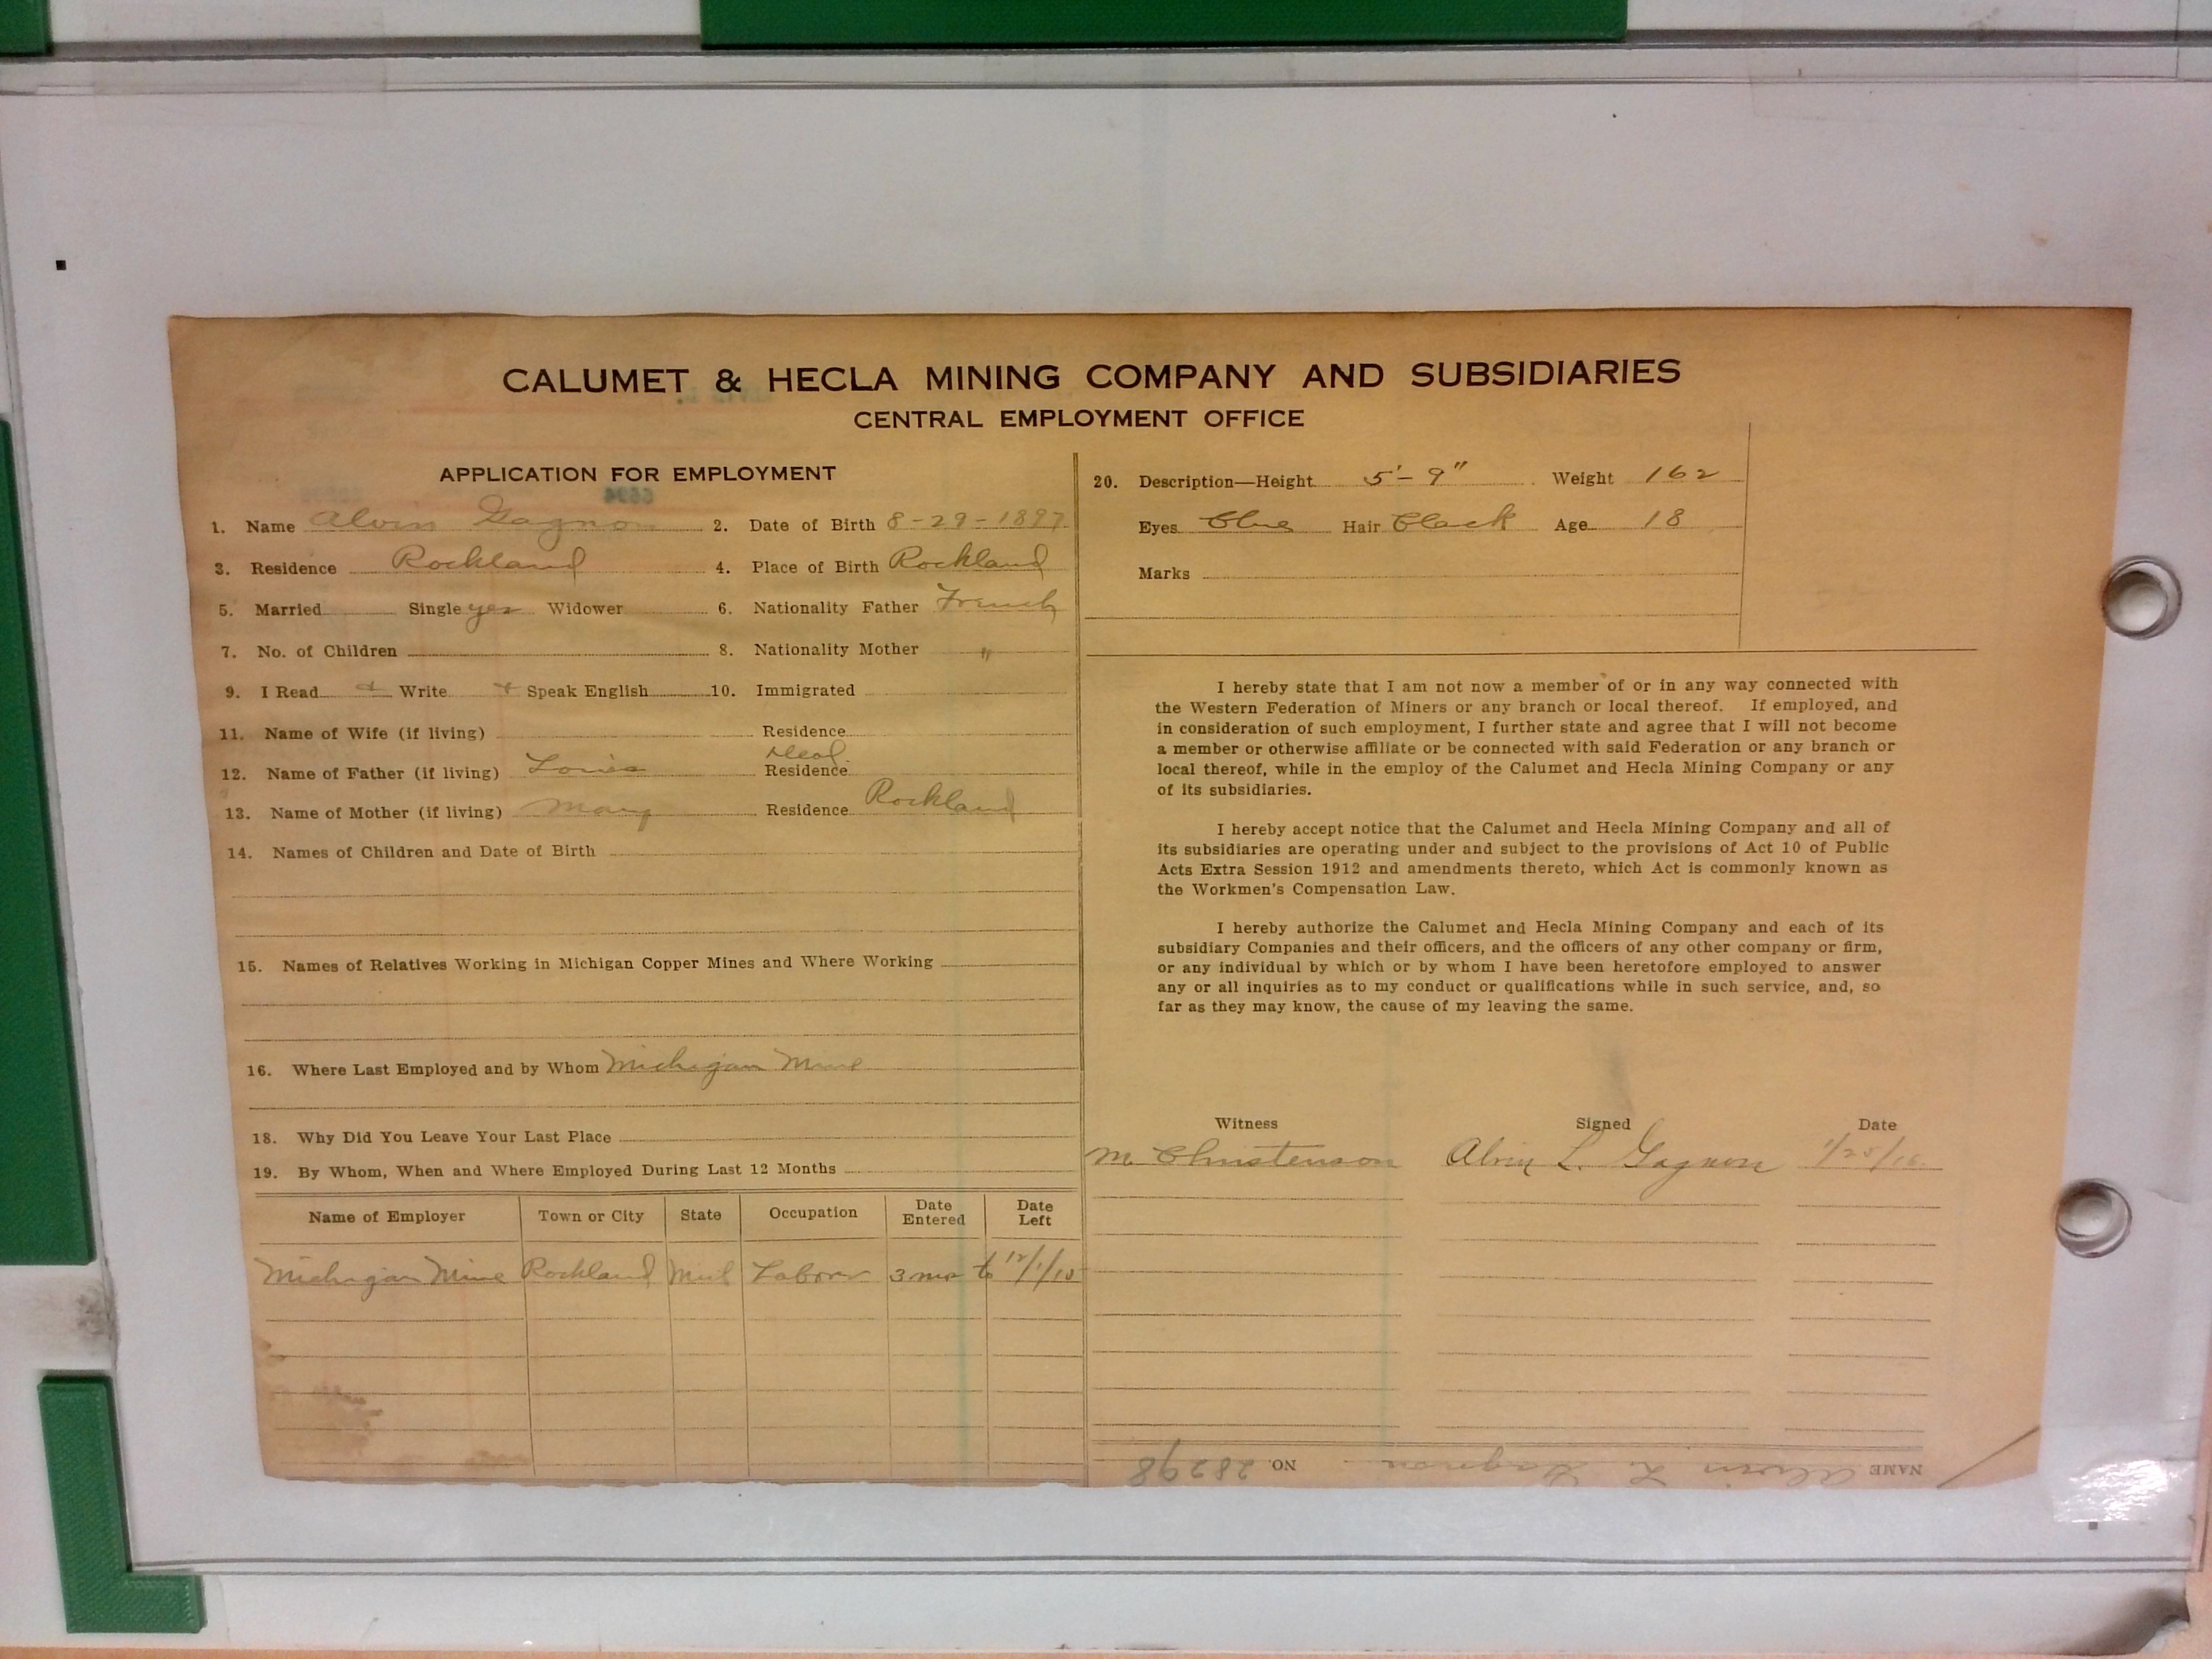 CALUMET & HECLA MINING COMPANY AND SUBSIDIARIES
CENTRAL EMPLOYMENT OFFICE
APPLICATION FOR EMPLOYMENT
1. Name Alvin Gagnon 2. Date of Birth 8-29-1897
3. Residence Rockland 4. Place of Birth Rockland
5. Married Single yes Widower 6. Nationality Father French
7. No. of Children 8. Nationality Mother "
9. I Read & Write & Speak English 10. Immigrated
11. Name of Wife (if living) Residence
12. Name of Father (if living) Louis Residence
13. Name of Mother (if living) Mary Residence Rockland
14. Names of Children and Date of Birth
15. Names of Relatives Working in Michigan Copper Mines and Where Working
16. Where Last Employed and by Whom Michigan Mine
18. Why Did You Leave Your Last Place
19. By Whom, When and Where Employed During Last 12 Months
Name of Employer Town or City State Occupation Date Entered Date Left
Michigan Mine Rockland Mich Labor 3 mo to 12/1/15
20. Description—Height 5'-9" Weight 162
Eyes Blue Hair Black Age 18
Marks
I hereby state that I am not now a member of or in any way connected with
the Western Federation of Miners or any branch or local thereof. If employed, and
in consideration of such employment, I further state and agree that I will not become
a member or otherwise affiliate or be connected with said Federation or any branch or
local thereof, while in the employ of the Calumet and Hecla Mining Company or any
of its subsidiaries.
I hereby accept notice that the Calumet and Hecla Mining Company and all of
its subsidiaries are operating under and subject to the provisions of Act 10 of Public
Acts Extra Session 1912 and amendments thereto, which Act is commonly known as
the Workmen's Compensation Law.
I hereby authorize the Calumet and Hecla Mining Company and each of its
subsidiary Companies and their officers, and the officers of any other company or firm,
or any individual by which or by whom I have been heretofore employed to answer
any or all inquiries as to my conduct or qualifications while in such service, and, so
far as they may know, the cause of my leaving the same.
Witness Signed Date
M. Christenson Alvin L. Gagnon 1/25/16
NAME Alvin L. Gagnon NO. 28298